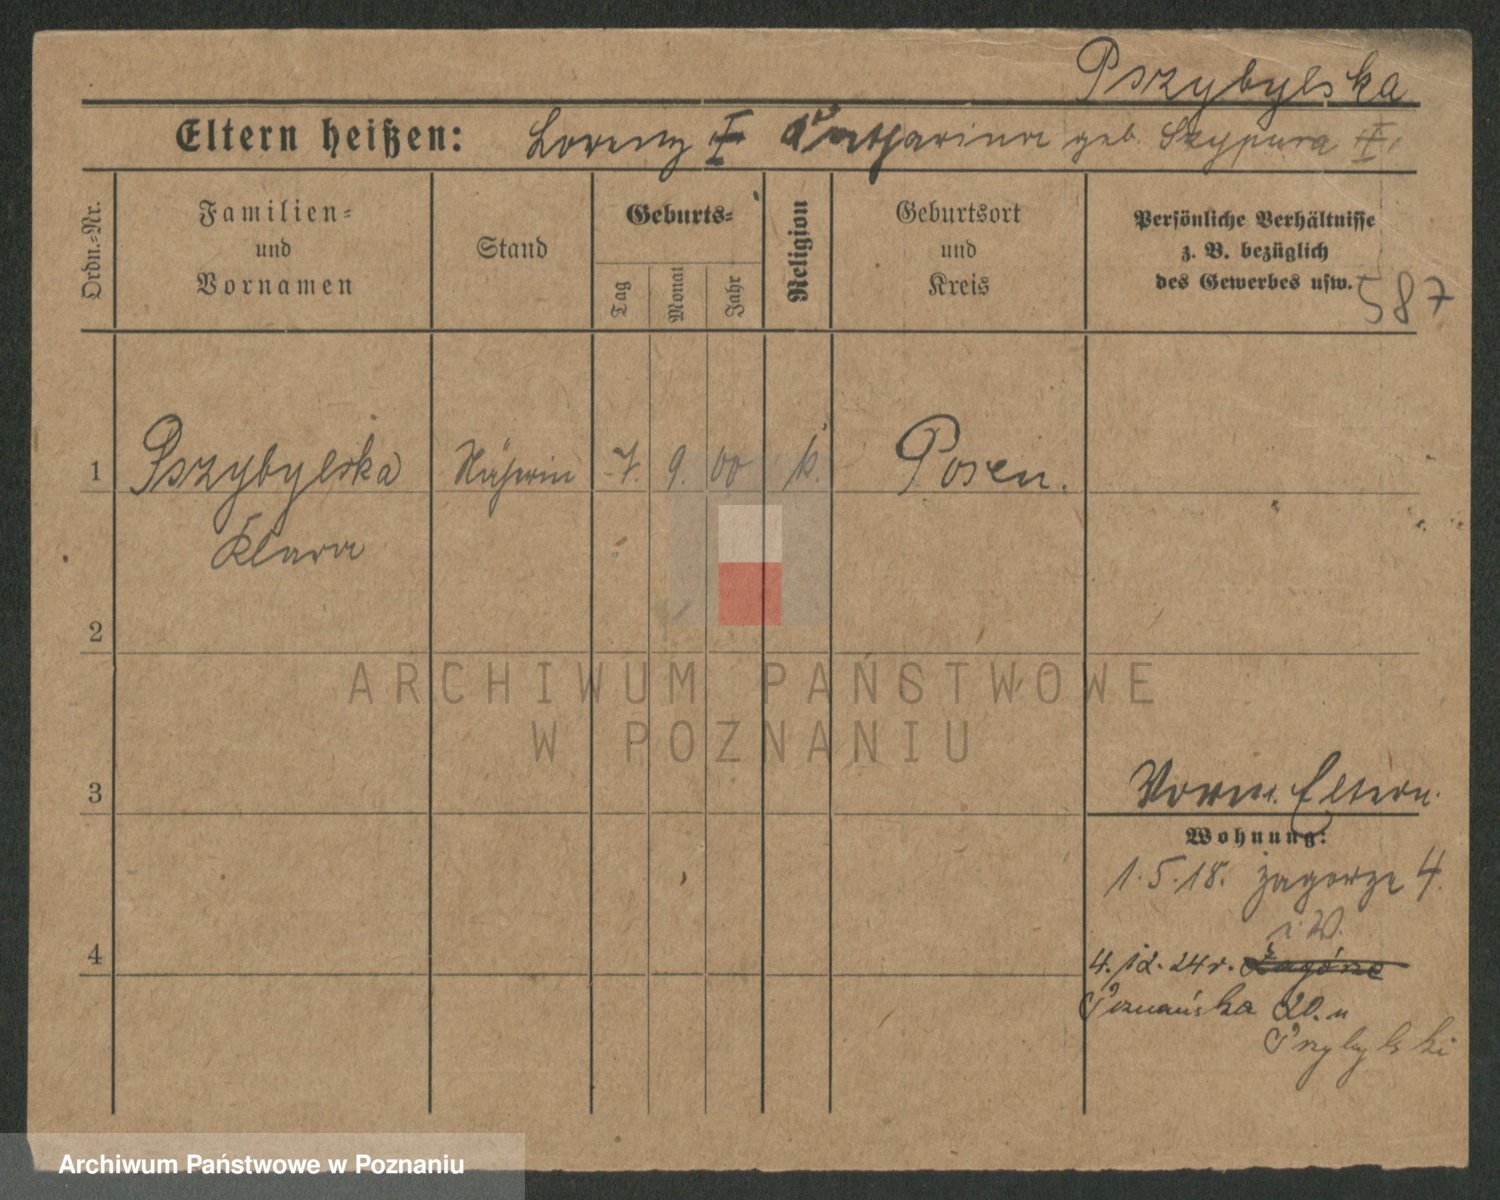 Pszybylska
Eltern heißen: Lorenz Catharina geb. Szypura
Ordn.=Nr.
Familien=
und
Vornamen
Stand
Geburts=
Tag
Monat
Jahr
Religion
Geburtsort
und
Kreis
Persönliche Verhältnisse
z. B. bezüglich
des Gewerbes usw.
587
1 Pszybylska Näherin 7. 9. 00 k. Posen.
Klara
2
ARCHIWUM PAŃSTWOWE
W POZNANIU
3
Vorm. Eltern.
Wohnung:
1.5.18. Zagorze 4.
i. W.
4
4.12.24r. Zagórze
Poznańska 20. u
Przybylski
Archiwum Państwowe w Poznaniu